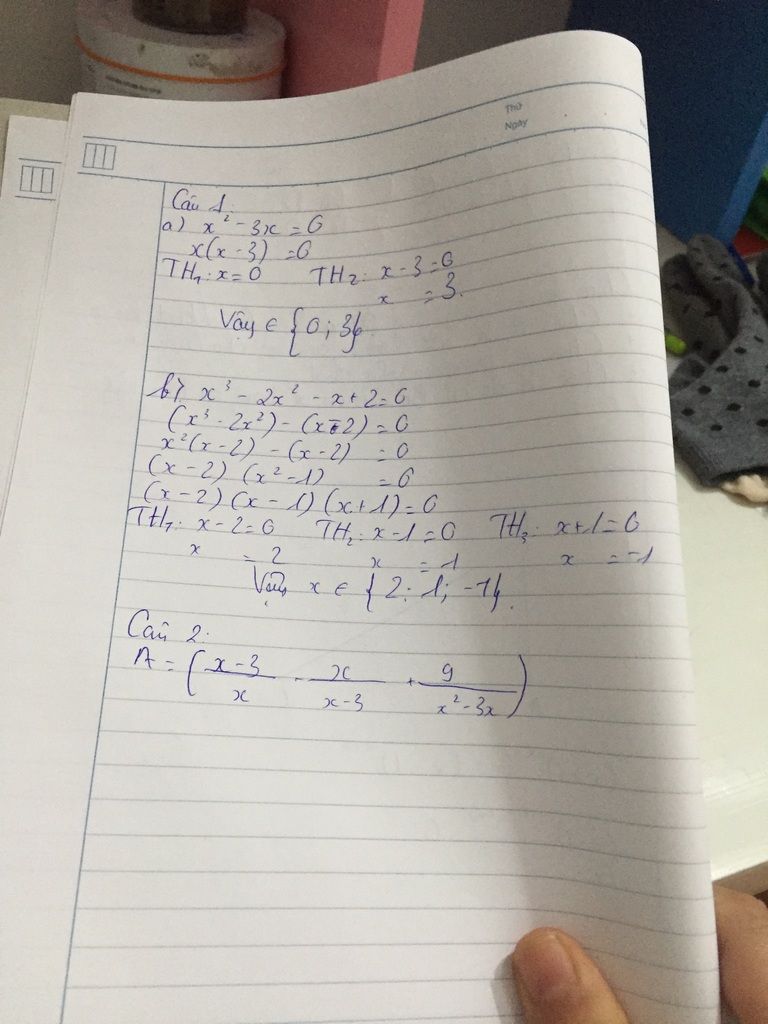 Thứ
Ngày
Câu 1:
a) x² - 3x = 0
x(x - 3) = 0
TH₁: x = 0 TH₂: x - 3 = 0
x = 3.
Vậy ∈ {0; 3}
b) x³ - 2x² - x + 2 = 0
(x³ - 2x²) - (x - 2) = 0
x²(x - 2) - (x - 2) = 0
(x - 2) (x² - 1) = 0
(x - 2) (x - 1) (x + 1) = 0
TH₁: x - 2 = 0 TH₂: x - 1 = 0 TH₃: x + 1 = 0
x = 2 x = 1 x = -1
Vậy x ∈ {2; 1; -1}.
Câu 2:
A = ( (x - 3)/x - x/(x - 3) + 9/(x² - 3x) )